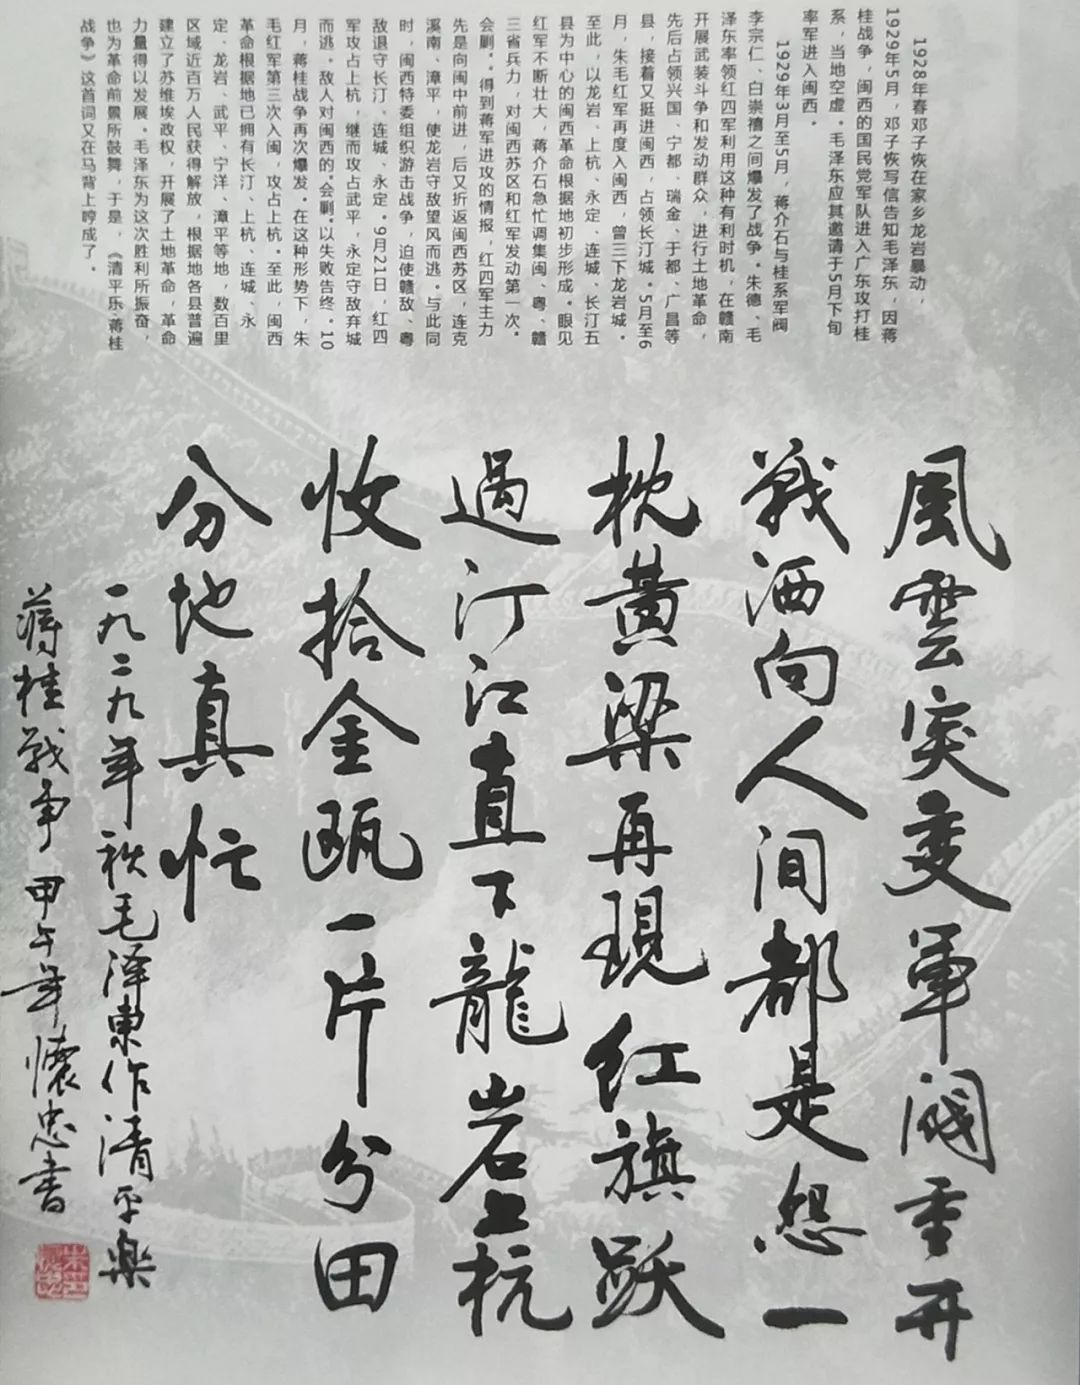 1928年春邓子恢在家乡龙岩暴动，
1929年5月，邓子恢写信告知毛泽东，因蒋
桂战争，闽西的国民党军队进入广东攻打桂
系，当地空虚。毛泽东应其邀请于5月下旬
率军进入闽西。
1929年3月至5月，蒋介石与桂系军阀
李宗仁、白崇禧之间爆发了战争。朱德、毛
泽东率领红四军利用这种有利时机，在赣南
开展武装斗争和发动群众，进行土地革命，
先后占领兴国、宁都、瑞金、于都、广昌等
县，接着又挺进闽西，占领长汀城。5月至6
月，朱毛红军再度入闽西，曾三下龙岩城。
至此，以龙岩、上杭、永定、连城、长汀五
县为中心的闽西革命根据地初步形成。眼见
红军不断壮大，蒋介石急忙调集闽、粤、赣
三省兵力，对闽西苏区和红军发动第一次“
会剿”。得到蒋军进攻的情报，红四军主力
先是向闽中前进，后又折返闽西苏区，连克
溪南、漳平，使龙岩守敌望风而逃。与此同
时，闽西特委组织游击战争，迫使赣敌、粤
敌退守长汀、连城、永定。9月21日，红四
军攻占上杭，继而攻占武平，永定守敌弃城
而逃。敌人对闽西的“会剿”以失败告终。10
月，蒋桂战争再次爆发。在这种形势下，朱
毛红军第三次入闽，攻占上杭。至此，闽西
革命根据地已拥有长汀、上杭、连城、永
定、龙岩、武平、宁洋、漳平等地，数百里
区域近百万人民获得解放，根据地各县普遍
建立了苏维埃政权，开展了土地革命，革命
力量得以发展。毛泽东为这次胜利所振奋，
也为革命前景所鼓舞，于是，《清平乐·蒋桂
战争》这首词又在马背上哼成了。
風雲突变軍閥重开
戰洒向人间都是怨一
枕黄粱再現红旗跃
過汀江直下龍岩上杭
收拾金瓯一片分田
分地真忙
一九二九年秋毛泽東作清平樂
蒋桂战争 甲午年懷忠書